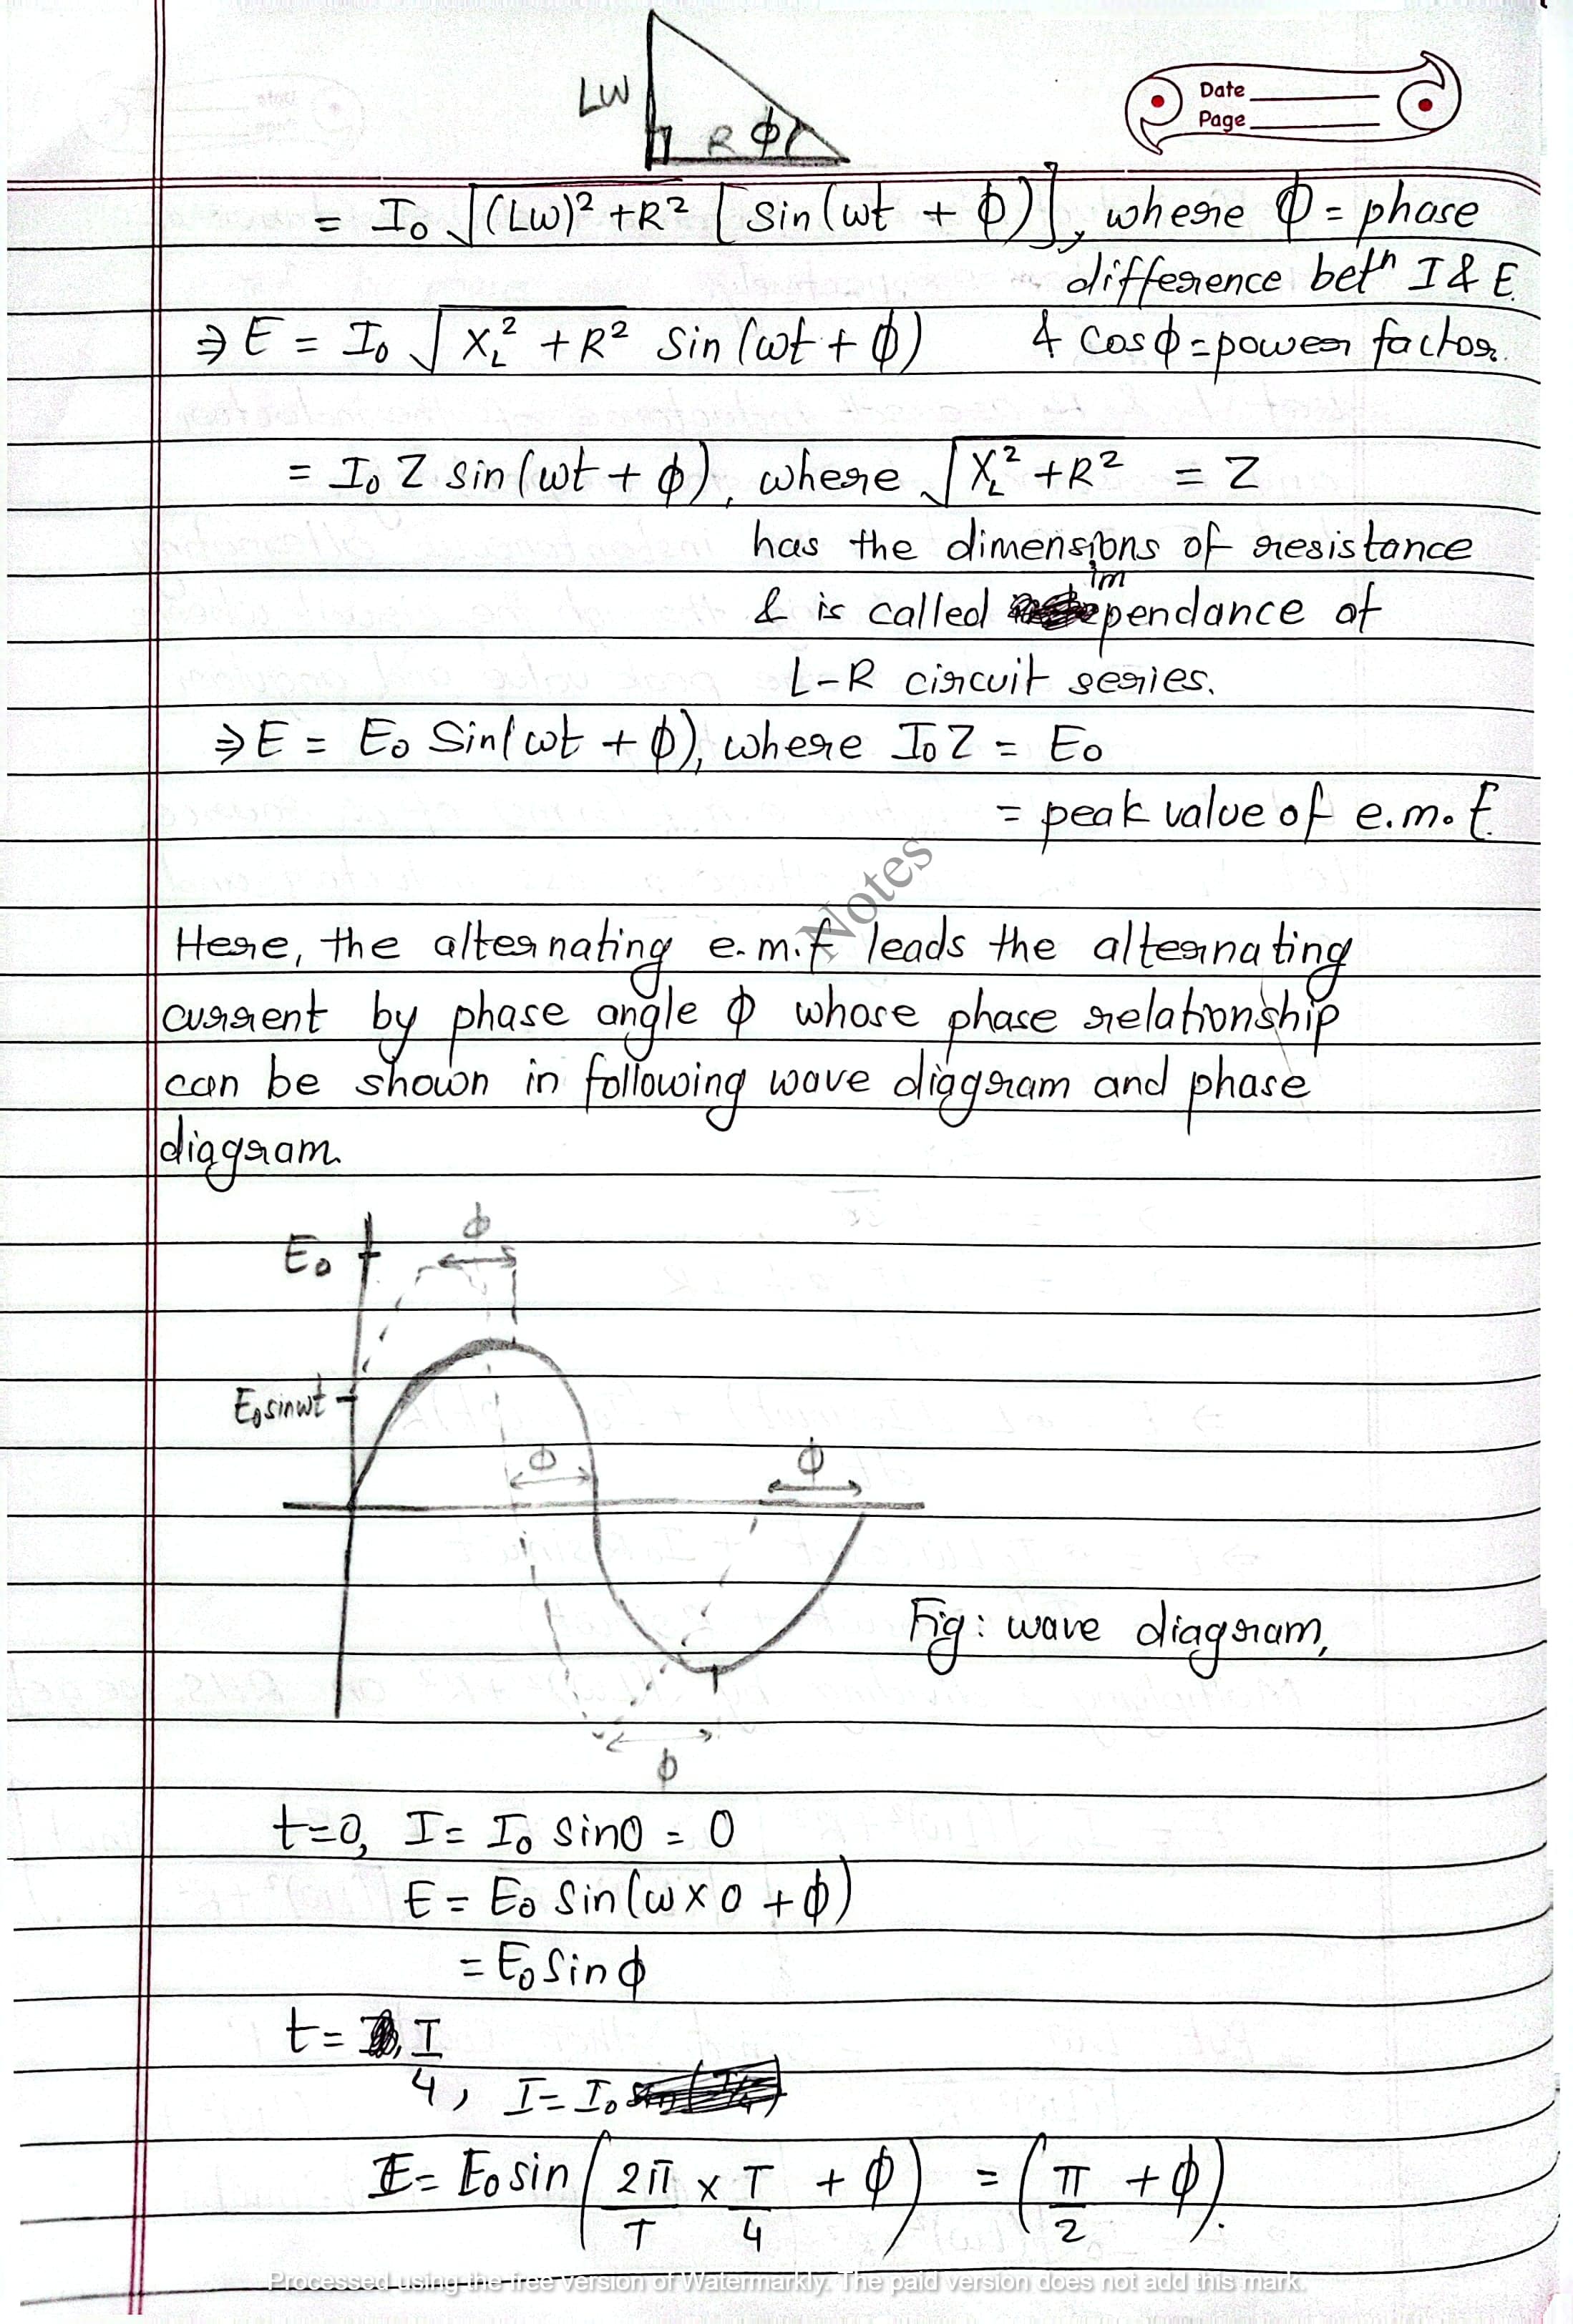 Lω
R ϕ
Date
Page
= I₀ √(Lω)² + R² [sin(ωt + ϕ)], where ϕ = phase
difference betⁿ I & E.
⇒ E = I₀ √X_L² + R² sin(ωt + ϕ) & cosϕ = power factor.
= I₀ Z sin(ωt + ϕ), where √X_L² + R² = Z
has the dimensions of resistance
im
& is called pendance of
L-R circuit series.
⇒ E = E₀ Sin(ωt + ϕ), where I₀Z = E₀
= peak value of e.m.f.
Notes
Here, the alternating e.m.f leads the alternating
current by phase angle ϕ whose phase relationship
can be shown in following wave diagram and phase
diagram.
ϕ
E₀
E₀sinωt
ϕ ϕ
Fig: wave diagram,
ϕ
t=0, I = I₀ sin0 = 0
E = E₀ Sin(ω×0 + ϕ)
= E₀ Sinϕ
t = I/4, I = I₀
E = E₀ sin(2π/T × T/4 + ϕ) = (π/2 + ϕ).
Processed using the free version of Watermarkly. The paid version does not add this mark.